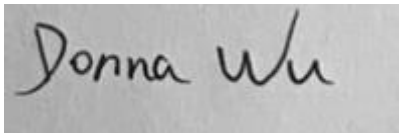 Donna Wu